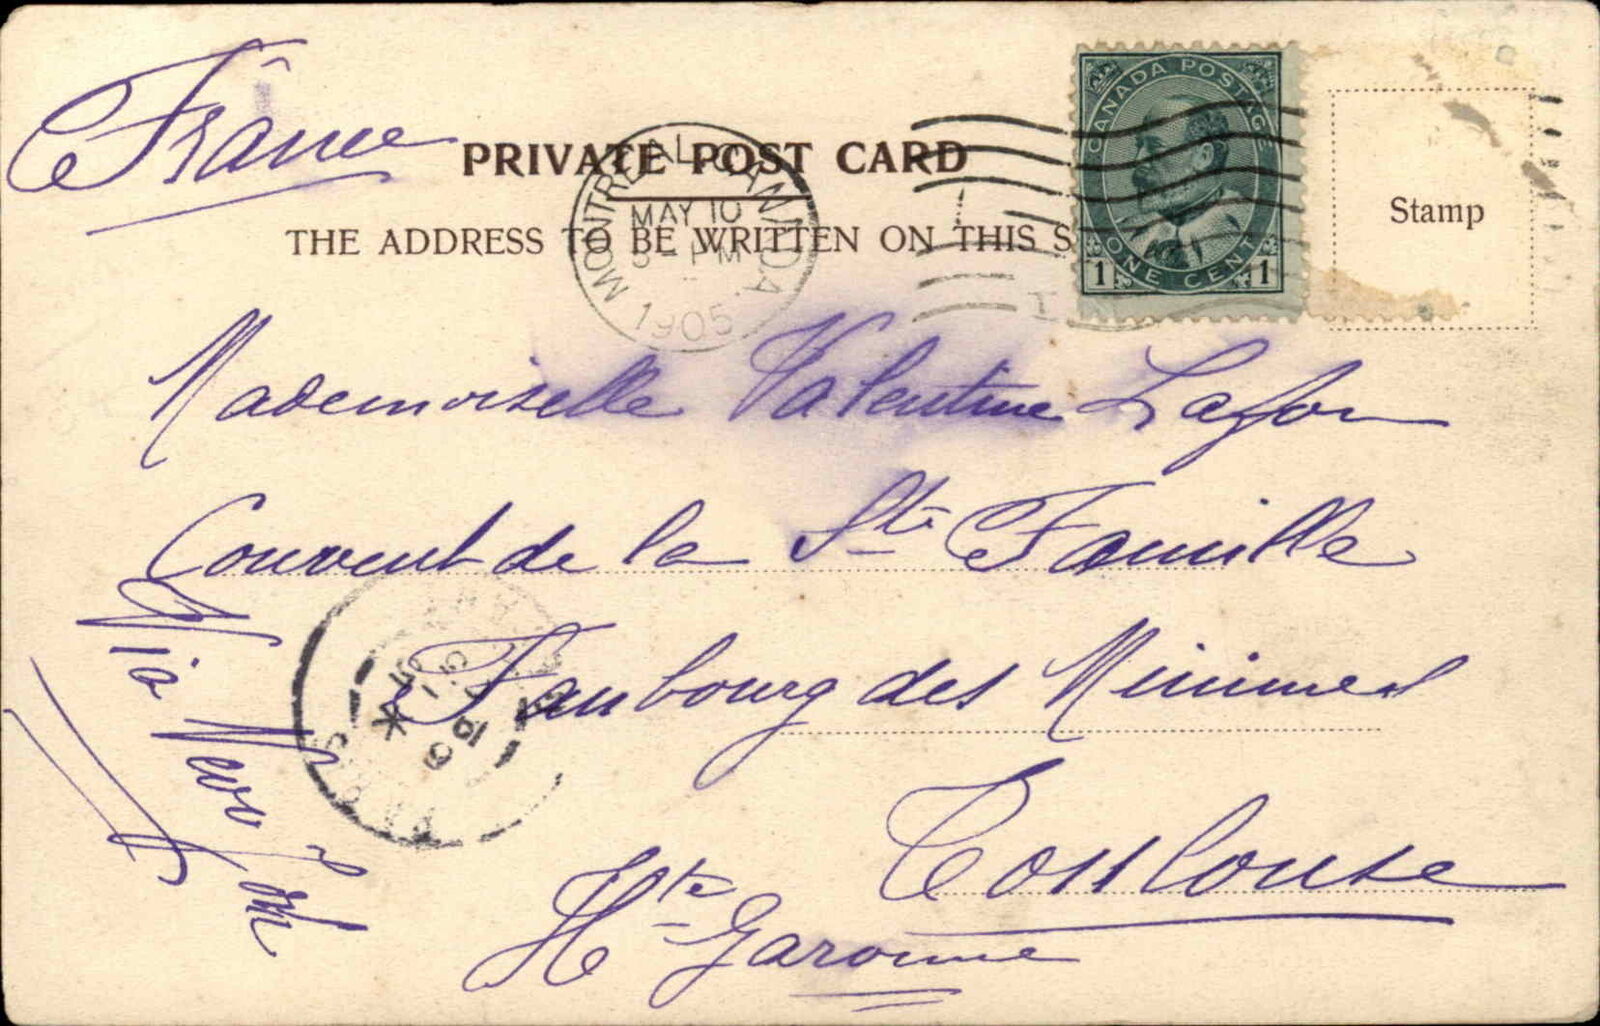 Françe
PRIVATE POST CARD
THE ADDRESS TO BE WRITTEN ON THIS S
MONTREAL, CANADA
MAY 10
PM
1905
CANADA POSTAGE
ONE CENT
1 1
Stamp
Mademoiselle Valentine Lafon
Couvent de la Ste Famille
Faubourg des Minimes
Toulouse
Hte Garonne
Via New York